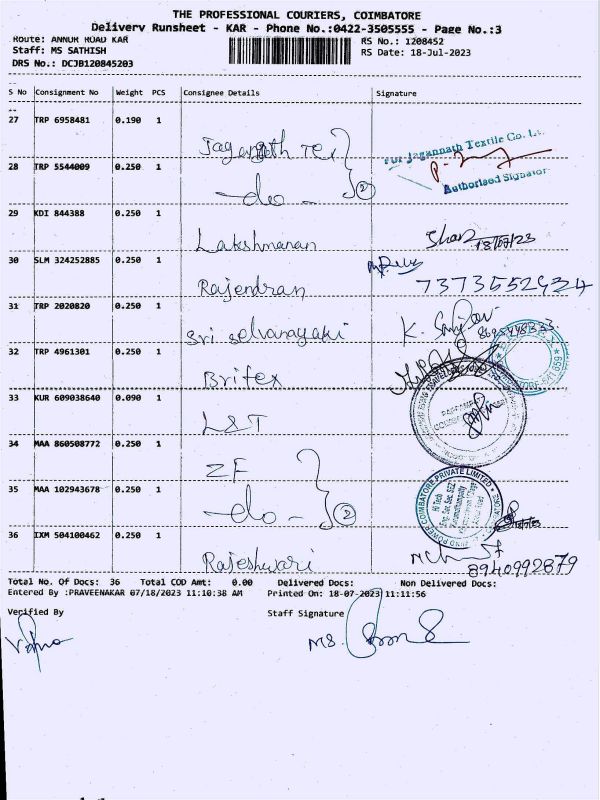 THE PROFESSIONAL COURIERS, COIMBATORE
Delivery Runsheet - KAR - Phone No.:0422-3505555 - Page No.:3
Route: ANNUR ROAD KAR
RS No.: 1208452
Staff: MS SATHISH
RS Date: 18-Jul-2023
DRS No.: DCJB120845203
S No Consignment No Weight PCS Consignee Details Signature
27 TRP 6958481 0.190 1
For Jagannath Textile Co. Lt.
Authorised Signator
28 TRP 5544009 0.250 1
-do- 2
29 KDI 844388 0.250 1
Lakshmanan 18/07/23
30 SLM 324252885 0.250 1
Rajendran
31 TRP 2020820 0.250 1
Sri Selvanayaki
32 TRP 4961301 0.250 1
Britex
33 KUR 609038640 0.090 1
L&T
34 MAA 860508772 0.250 1
ZF
35 MAA 102943678 0.250 1
-do- 2
36 IXM 504100462 0.250 1
Rajeshwari 8940992879
Total No. Of Docs: 36 Total COD Amt: 0.00 Delivered Docs: Non Delivered Docs:
Entered By :PRAVEENAKAR 07/18/2023 11:10:38 AM Printed On: 18-07-2023 11:11:56
Verified By Staff Signature
MS.